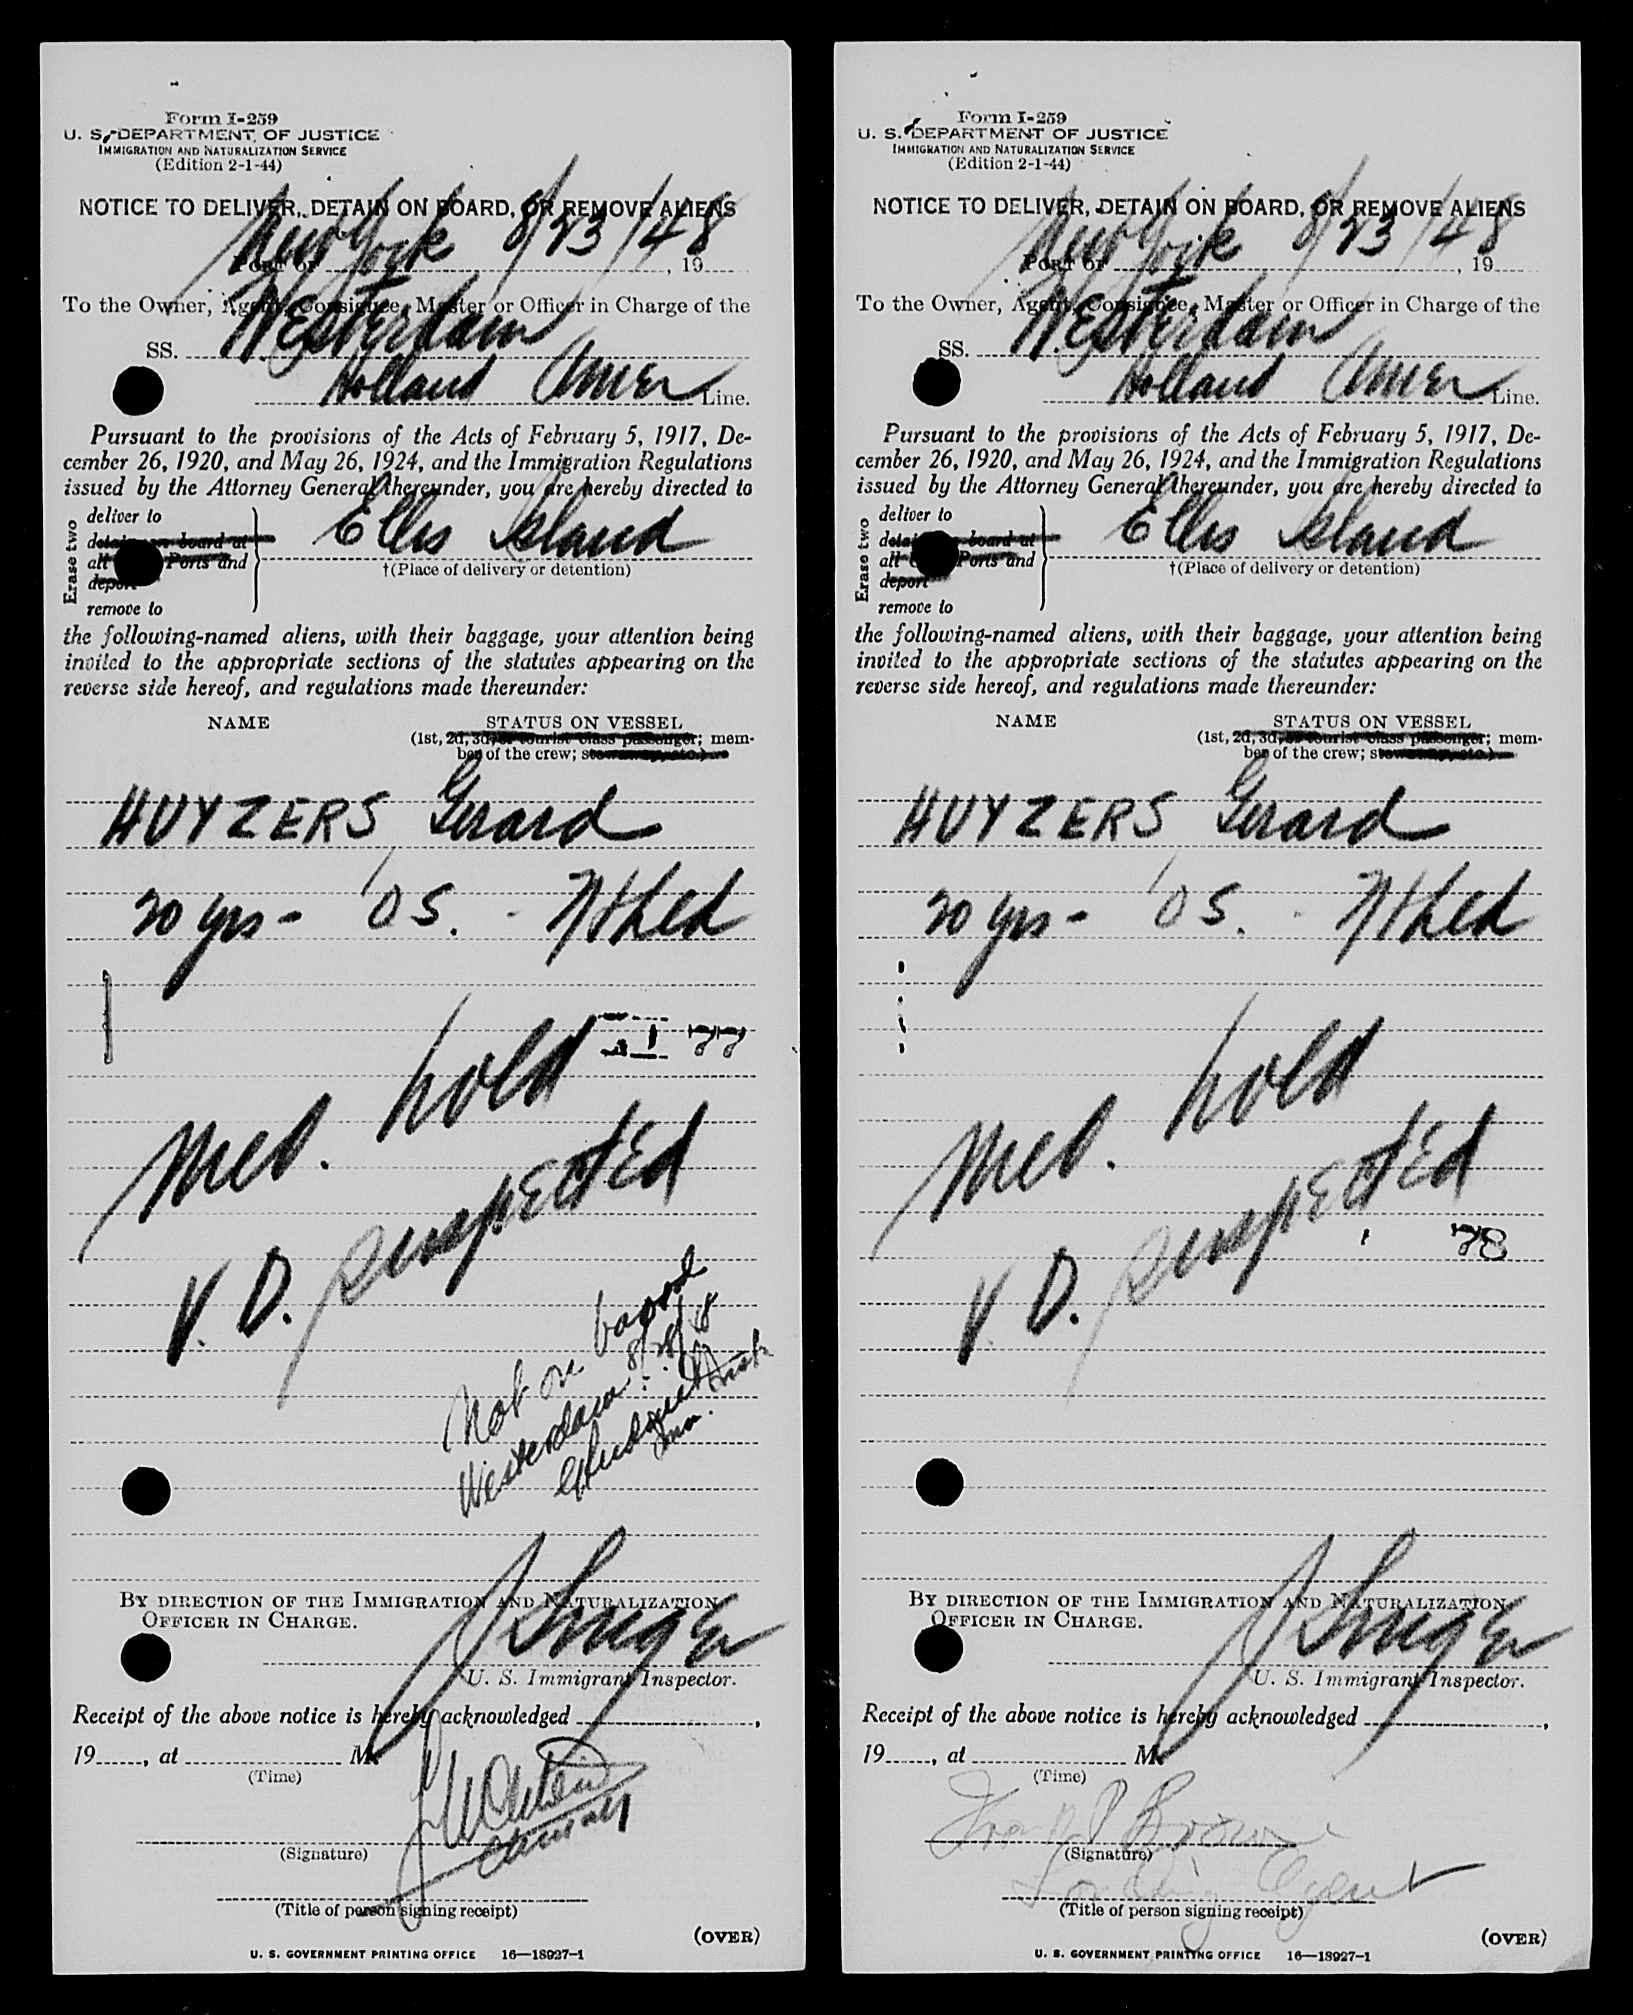 Form I-259
U. S. DEPARTMENT OF JUSTICE
IMMIGRATION AND NATURALIZATION SERVICE
(Edition 2-1-44)
NOTICE TO DELIVER, DETAIN ON BOARD, OR REMOVE ALIENS
New York 8/23/48
PORT OF , 19
To the Owner, Agent, Consignee, Master or Officer in Charge of the
SS. Westerdam
Holland Amer Line.
Pursuant to the provisions of the Acts of February 5, 1917, De-
cember 26, 1920, and May 26, 1924, and the Immigration Regulations
issued by the Attorney General thereunder, you are hereby directed to
Erase two
deliver to
detain on board at
all Ports and
deport
remove to
Ellis Island
†(Place of delivery or detention)
the following-named aliens, with their baggage, your attention being
invited to the appropriate sections of the statutes appearing on the
reverse side hereof, and regulations made thereunder:
NAME STATUS ON VESSEL
(1st, 2d, 3d, or tourist class passenger; mem-
ber of the crew; stowaway, etc.)
HUYZERS Gerard
20 yrs - OS. - Nthld
77
Med. hold
V. D. suspected
Not on board
Westerdam 8/28/48
BY DIRECTION OF THE IMMIGRATION AND NATURALIZATION
OFFICER IN CHARGE.
U. S. Immigrant Inspector.
Receipt of the above notice is hereby acknowledged ,
19 , at M.
(Time)
(Signature)
(Title of person signing receipt)
(OVER)
U. S. GOVERNMENT PRINTING OFFICE 16—18927-1
Form I-259
U. S. DEPARTMENT OF JUSTICE
IMMIGRATION AND NATURALIZATION SERVICE
(Edition 2-1-44)
NOTICE TO DELIVER, DETAIN ON BOARD, OR REMOVE ALIENS
New York 8/23/48
PORT OF , 19
To the Owner, Agent, Consignee, Master or Officer in Charge of the
SS. Westerdam
Holland Amer Line.
Pursuant to the provisions of the Acts of February 5, 1917, De-
cember 26, 1920, and May 26, 1924, and the Immigration Regulations
issued by the Attorney General thereunder, you are hereby directed to
Erase two
deliver to
detain board at
all Ports and
deport
remove to
Ellis Island
†(Place of delivery or detention)
the following-named aliens, with their baggage, your attention being
invited to the appropriate sections of the statutes appearing on the
reverse side hereof, and regulations made thereunder:
NAME STATUS ON VESSEL
(1st, 2d, 3d, or tourist class passenger; mem-
ber of the crew; stowaway, etc.)
HUYZERS Gerard
20 yrs - OS. - Nthld
Med. hold
V. D. suspected
78
BY DIRECTION OF THE IMMIGRATION AND NATURALIZATION
OFFICER IN CHARGE.
U. S. Immigrant Inspector.
Receipt of the above notice is hereby acknowledged ,
19 , at M.
(Time)
Frank P Brown
(Signature)
Agent
(Title of person signing receipt)
(OVER)
U. S. GOVERNMENT PRINTING OFFICE 16—18927-1